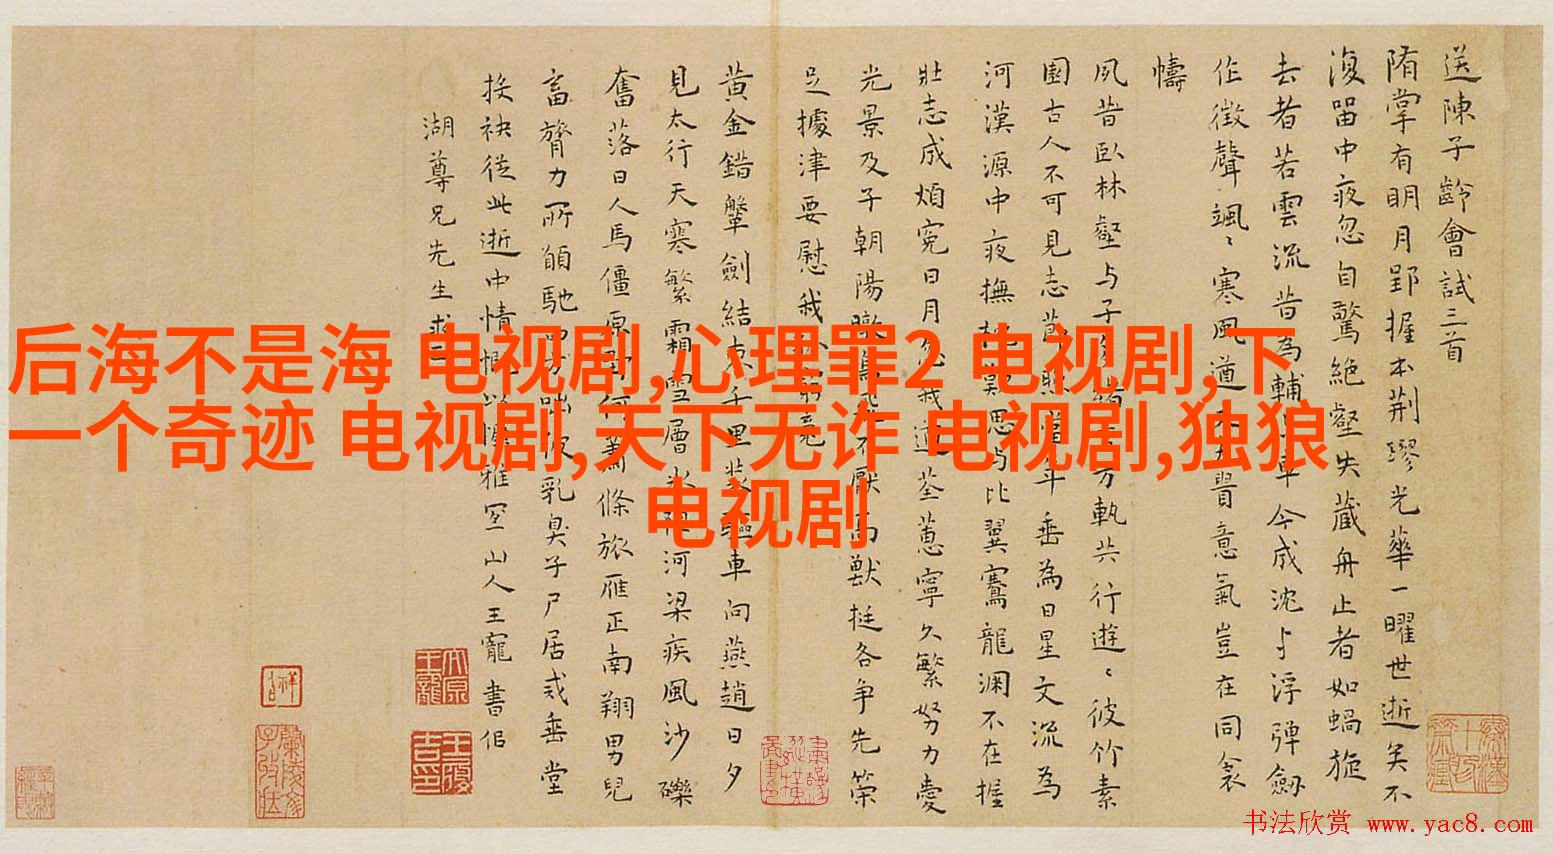 后海不是海 电视剧,心理罪2 电视剧,下
一个奇迹 电视剧,天下无诈 电视剧,独狼
电视剧
送陳子齡會試三首
隋掌有明月郢握本荆璆光華一曜世逝矣不
復留中夜忽自驚絶壑失藏舟止者如蝸旋
去者若雲流昔為輔車今成沈与浮彈劒
作徵聲颯〻寒風遒意氣豈在同衾
幬
夙昔臥林壑与子万執共行遊〻彼竹素
園古人不可見志節照斗垂為日星文流為
河漢源中夜撫思与比翼騫龍淵不在握
壯志成煩寃日月我道荃蕙寧久繁努力愛
光景及子朝陽暾不厭高獸挺各争先榮
足據津要慰我
黄金錯鞶劍結束千里裝驅車向燕趙日夕
見太行天寒繁霜雪層冰河梁疾風沙礫
奮落日人馬僵原野何蕭條旅雁正南翔男兒
畜膂力所願馳四方咄彼乳臭子尸居或垂堂
接袂從此逝中情悵以傷雅宜山人王寵書侣
湖尊兄先生求
书法欣赏 www.yac8.com